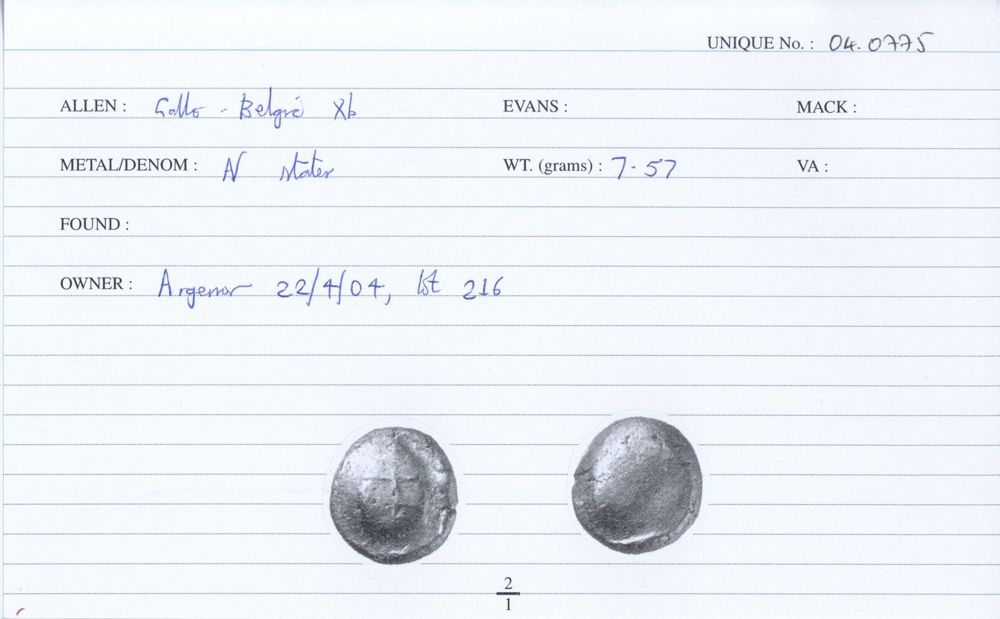 UNIQUE No. : 04.0775
ALLEN : Gallo-Belgic Xb EVANS : MACK :
METAL/DENOM : N stater WT. (grams) : 7.57 VA :
FOUND :
OWNER : Argenor 22/4/04, lot 216
2
1